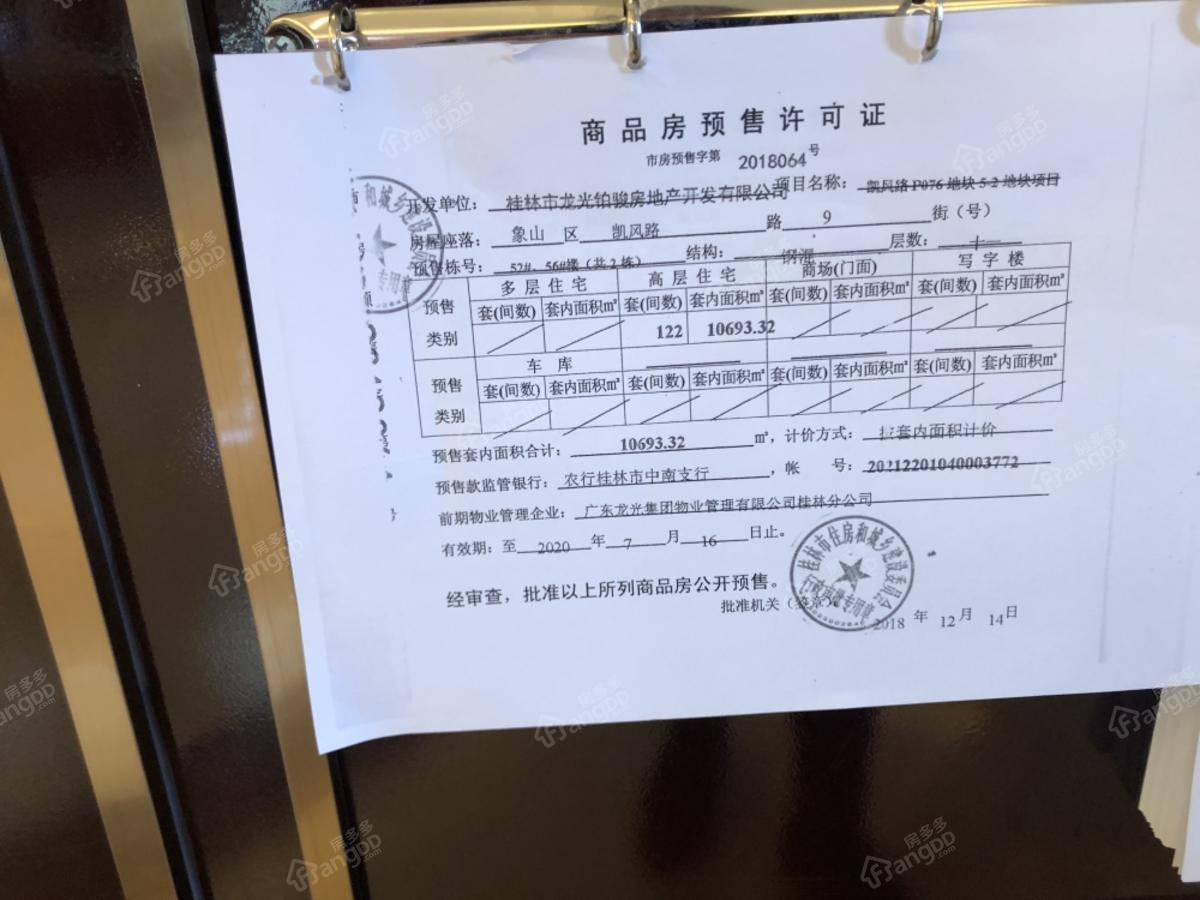 商品房预售许可证
市房预售字第 2018064号
开发单位: 桂林市龙光铂骏房地产开发有限公司 项目名称: 凯风路P076地块5-2地块项目
房屋座落: 象山 区 凯风路 路 9 街(号)
预售栋号: 52#、56#楼(共2栋) 结构: 钢混 层数: 十一
预售类别 多层住宅 高层住宅 商场(门面) 写字楼
套(间数) 套内面积㎡ 套(间数) 套内面积㎡ 套(间数) 套内面积㎡ 套(间数) 套内面积㎡
122 10693.32
预售类别 车库
套(间数) 套内面积㎡ 套(间数) 套内面积㎡ 套(间数) 套内面积㎡ 套(间数) 套内面积㎡
预售套内面积合计: 10693.32 ㎡, 计价方式: 按套内面积计价
预售款监管银行: 农行桂林市中南支行, 帐 号: 20212201040003772
前期物业管理企业: 广东龙光集团物业管理有限公司桂林分公司
有效期: 至 2020 年 7 月 16 日止。
经审查,批准以上所列商品房公开预售。
批准机关(签章)
桂林市住房和城乡建设委员会
行政审批专用章
2018 年 12 月 14 日
和城乡建设委员会
专用章
房多多
Fangdd.com